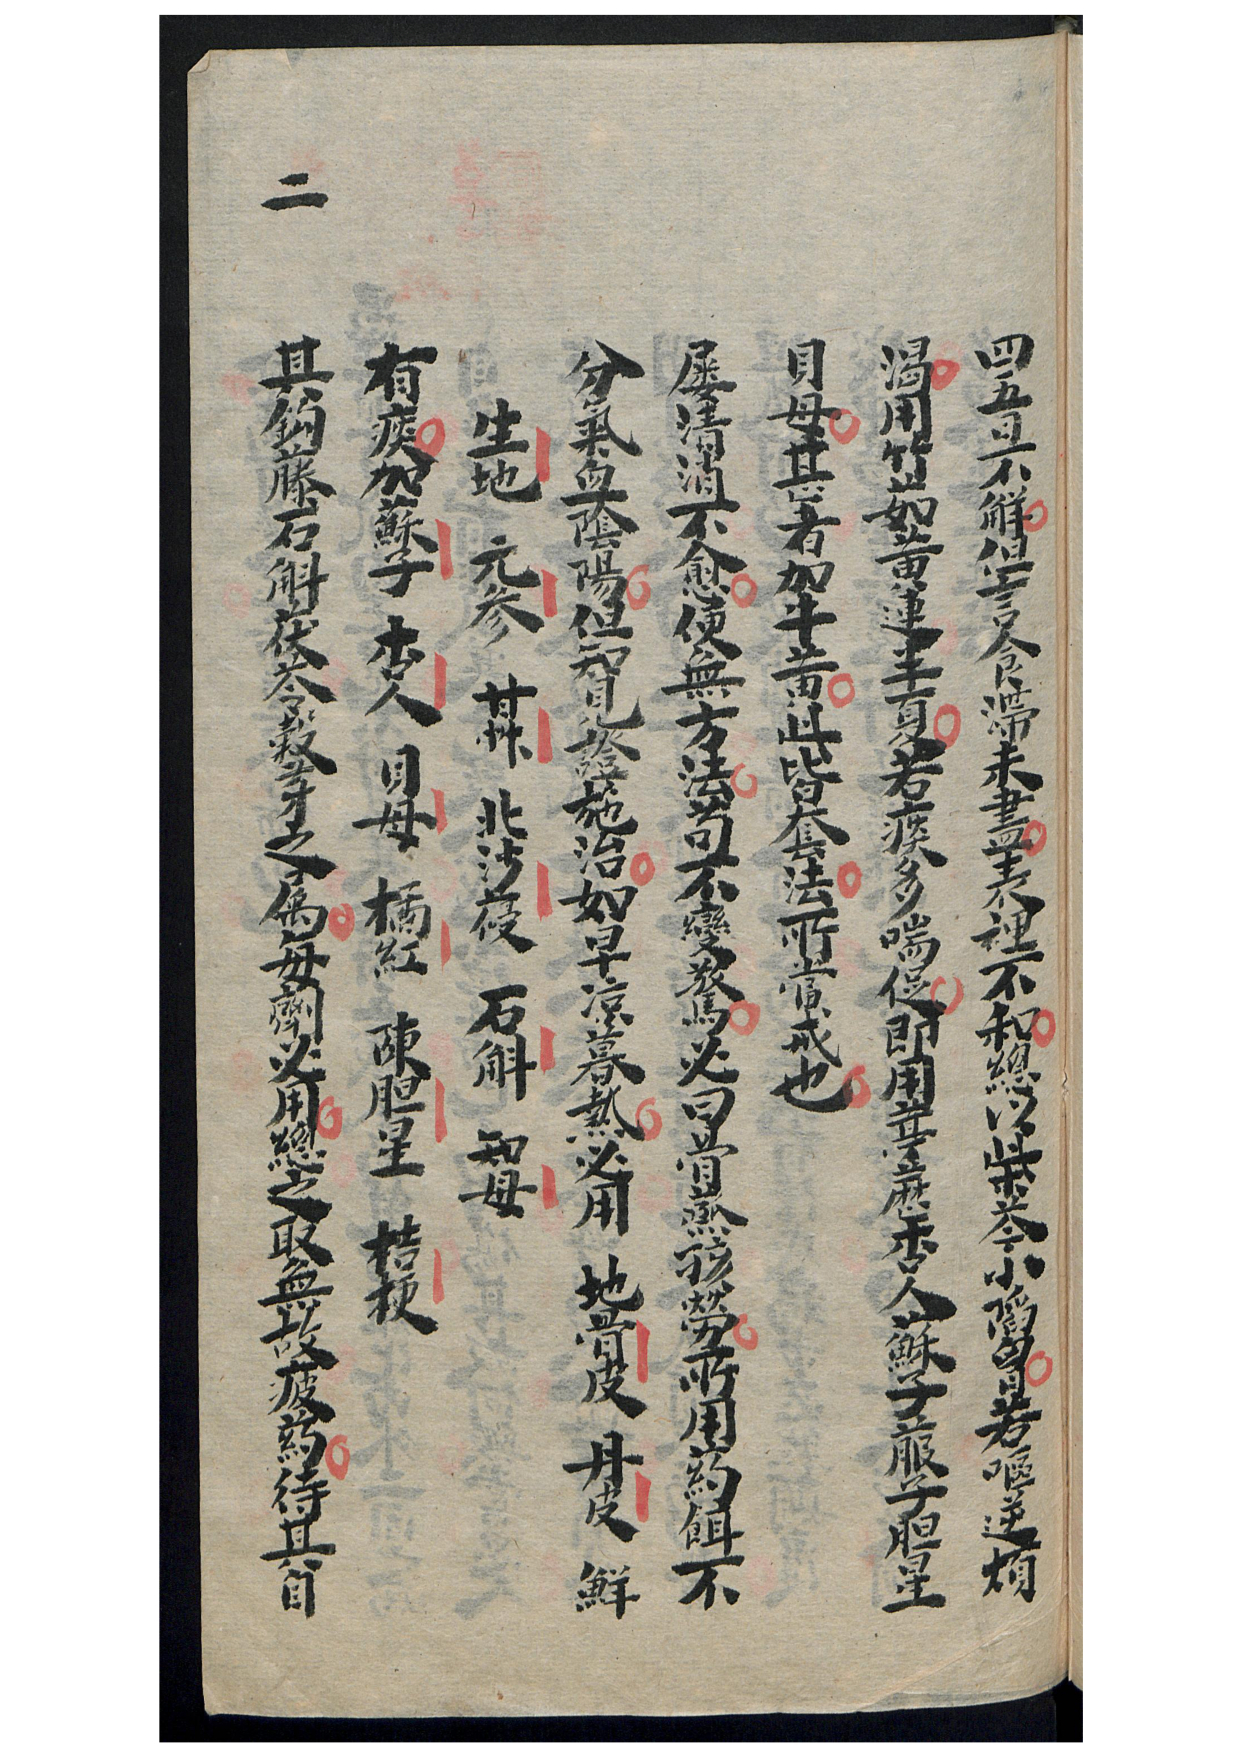 四五日不解但言食滯未盡表裡不和總以柴芩小陷胷若嘔逆煩
渴用竹茹黃連半夏若痰多喘促即用葶藶杏人蘇子菔子胆星
貝母甚者加牛黃此皆套法所當戒也
屢清消不愈便無方法苟不變驚必曰骨蒸孩勞所用药餌不
分氣血陰陽但知見證施治如早凉暮熱必用 地骨皮 丹皮 鮮
生地 元參 甘艸 北沙葠 石斛 知母
有痰加蘇子 杏人 貝母 橘紅 陳胆星 桔梗
其鈎藤石斛茯苓穀芽之属每劑必用總之取無故疲药待其自
二